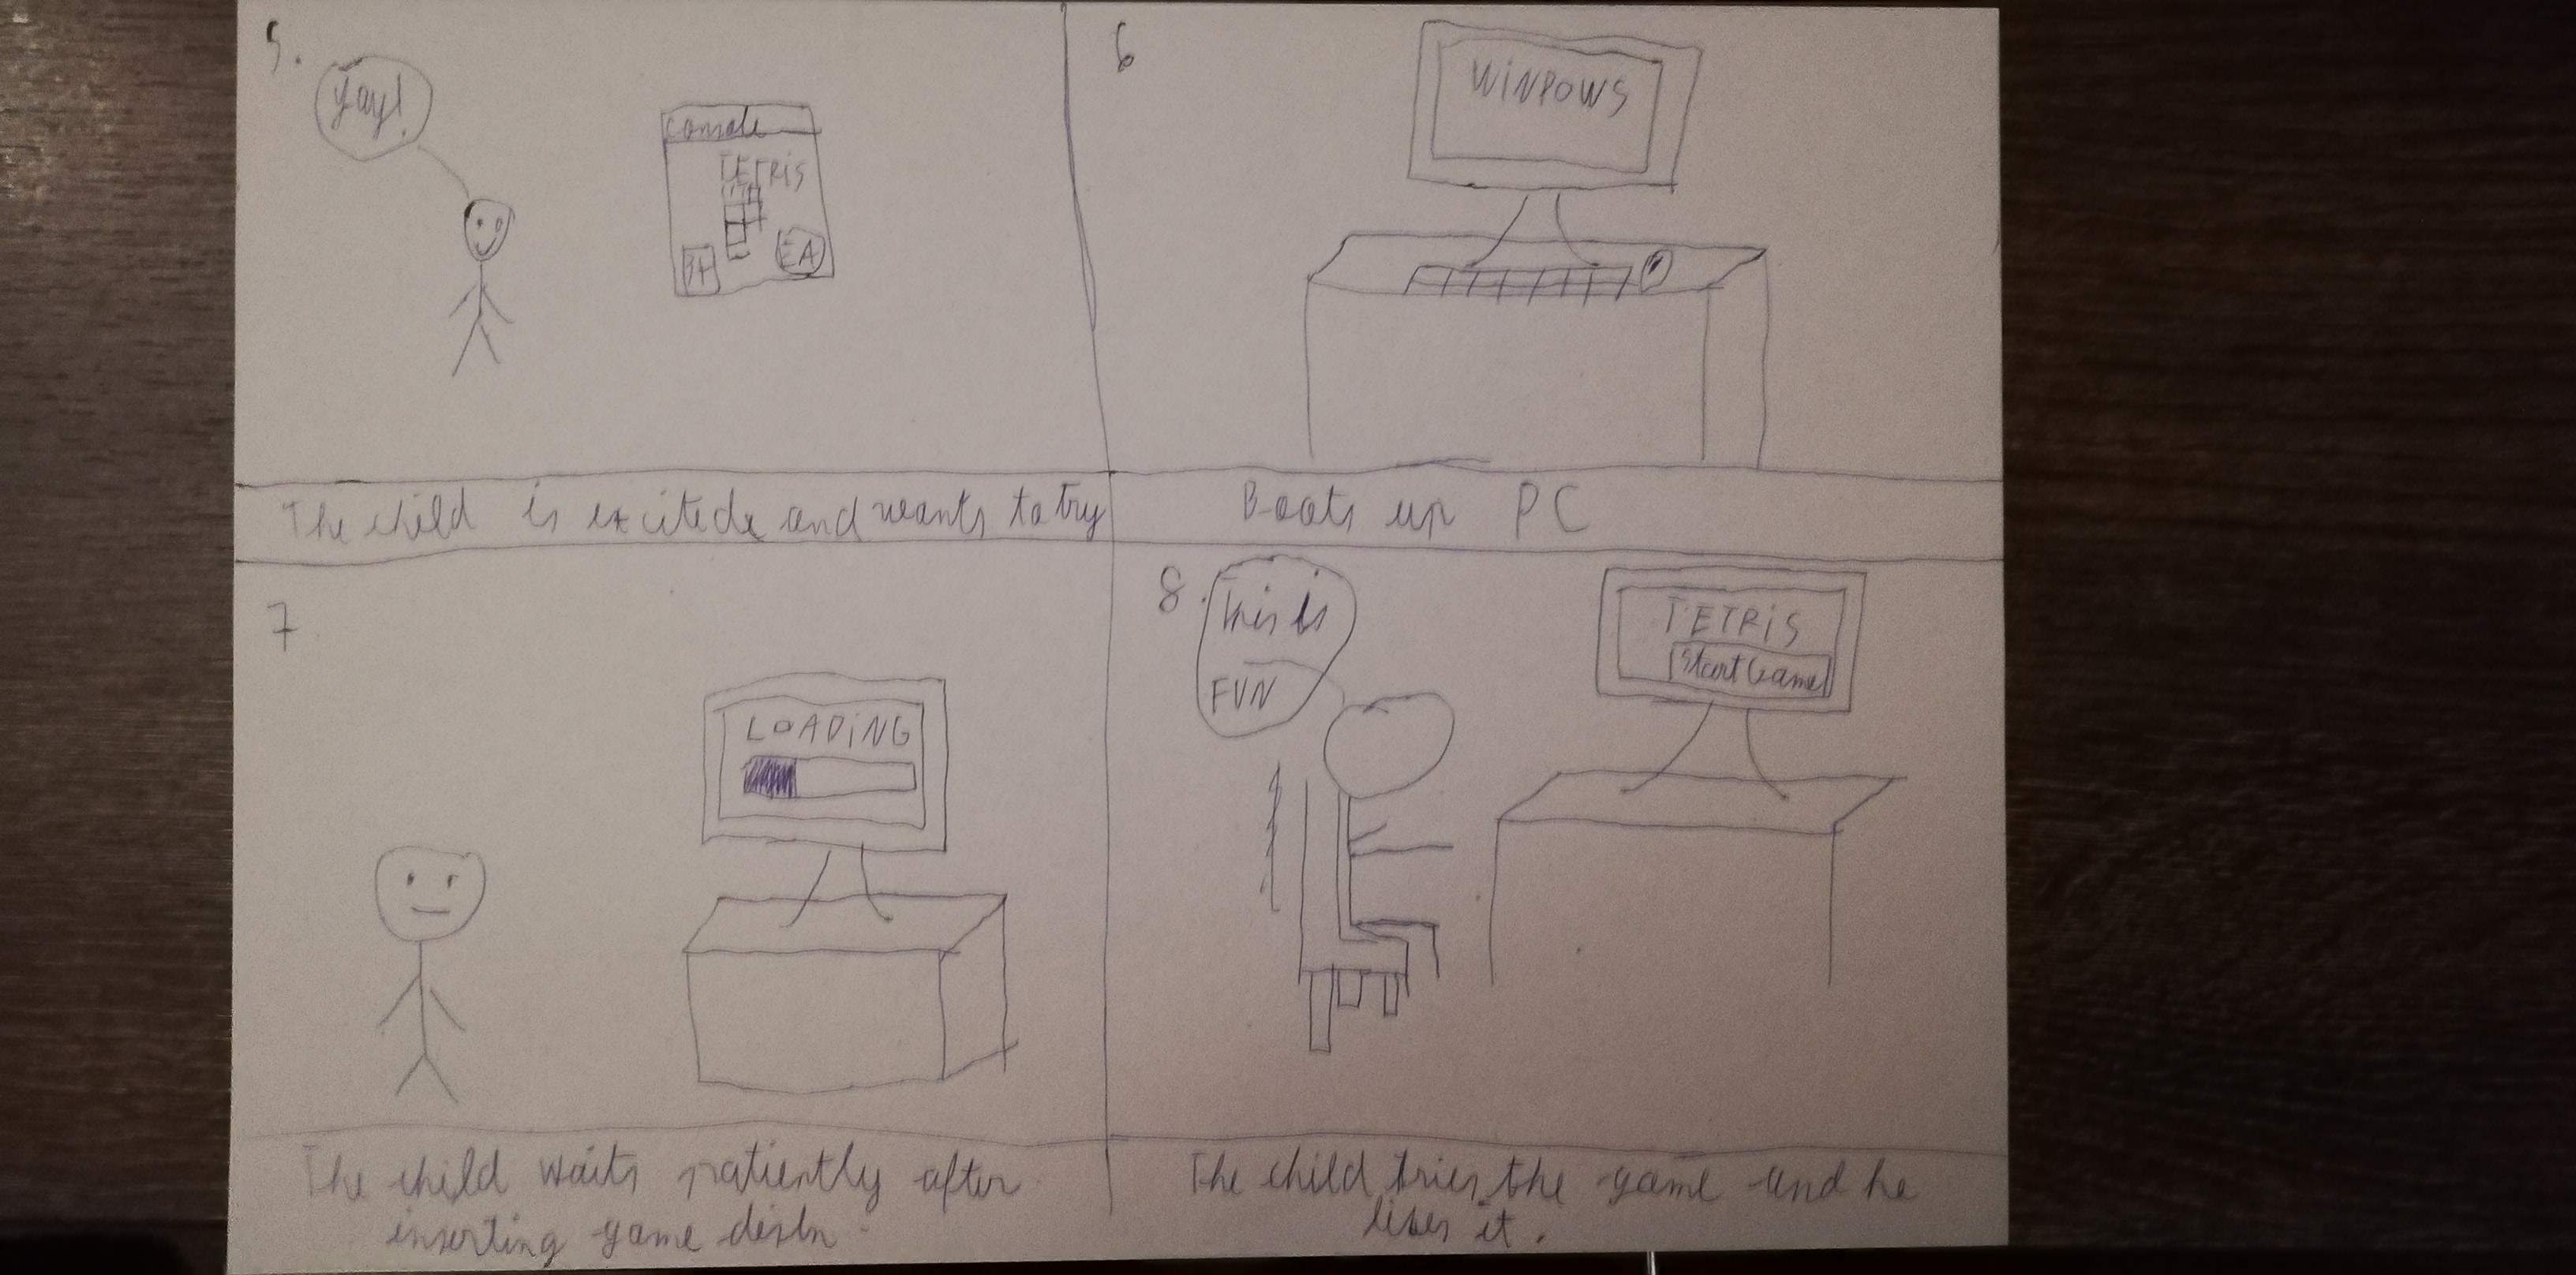 5.
Yay!
console
TETRiS
3+
EA
The child is excited and wants to try
6
WiNDOWS
Boots up PC
7
LOADiNG
The child waits patiently after
inserting game
8.
This is
FUN
TETRiS
Start Game
The child tries the game and he
likes it.